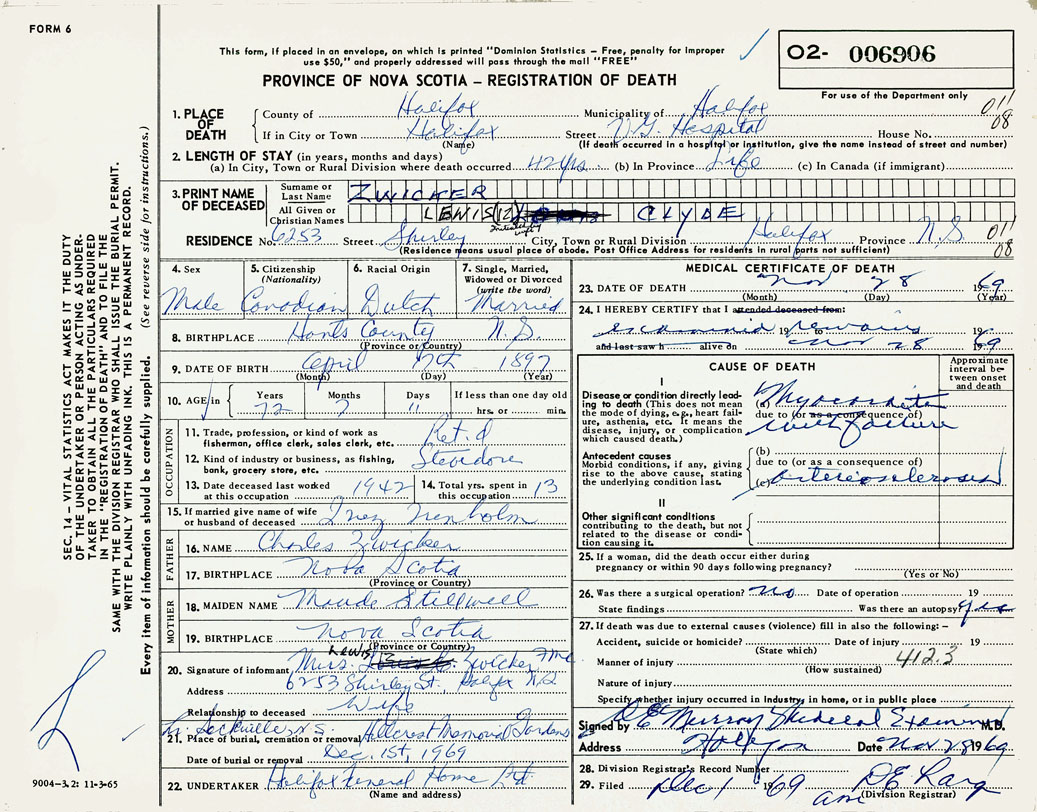 FORM 6
This form, if placed in an envelope, on which is printed "Dominion Statistics – Free, penalty for improper
use $50," and properly addressed will pass through the mail "FREE"
O2- 006906
PROVINCE OF NOVA SCOTIA – REGISTRATION OF DEATH
For use of the Department only
011
08
1. PLACE OF DEATH
County of Halifax Municipality of Halifax
If in City or Town Halifax Street V.G. Hospital House No.
(Name) (If death occurred in a hospital or institution, give the name instead of street and number)
2. LENGTH OF STAY (in years, months and days)
(a) In City, Town or Rural Division where death occurred 42 yrs. (b) In Province Life (c) In Canada (if immigrant)
3. PRINT NAME OF DECEASED
Surname or Last Name ZWICKER
All Given or Christian Names LEWIS (12) CLYDE
RESIDENCE No. 6253 Street Shirley City, Town or Rural Division Halifax Province N.S. 011
08
(Residence means usual place of abode. Post Office Address for residents in rural parts not sufficient)
4. Sex
Male
5. Citizenship
(Nationality)
Canadian
6. Racial Origin
Dutch
7. Single, Married,
Widowed or Divorced
(write the word)
Married
8. BIRTHPLACE Hants County N.S.
(Province or Country)
9. DATE OF BIRTH April 17th 1897
(Month) (Day) (Year)
10. AGE in Years Months Days If less than one day old
72 7 11 hrs. or min.
OCCUPATION
11. Trade, profession, or kind of work as
fisherman, office clerk, sales clerk, etc. Ret.d
12. Kind of industry or business, as fishing,
bank, grocery store, etc. Stevedore
13. Date deceased last worked
at this occupation 1942
14. Total yrs. spent in
this occupation 13
15. If married give name of wife
or husband of deceased Inez Trenholm
FATHER
16. NAME Charles Zwicker
17. BIRTHPLACE Nova Scotia
(Province or Country)
MOTHER
18. MAIDEN NAME Maude Stillwell
19. BIRTHPLACE Nova Scotia
(Province or Country)
20. Signature of informant Mrs. Lewis C. Zwicker
Address 6253 Shirley St., Halifax N.S.
Relationship to deceased Wife
Lr. Sackville, N.S.
21. Place of burial, cremation or removal Hillcrest Memorial Gardens
Date of burial or removal Dec. 1st, 1969
22. UNDERTAKER Halifax Funeral Home Ltd
(Name and address)
MEDICAL CERTIFICATE OF DEATH
23. DATE OF DEATH Nov 28 1969
(Month) (Day) (Year)
24. I HEREBY CERTIFY that I attended deceased from:
examined 19 remains 19
and last saw h alive on Nov 28 1969
CAUSE OF DEATH
Approximate
interval be-
tween onset
and death
I
Disease or condition directly lead-
ing to death (This does not mean
the mode of dying, e.g., heart fail-
ure, asthenia, etc. It means the
disease, injury, or complication
which caused death.)
(a) Myocarditis
due to (or as a consequence of)
with failure
Antecedent causes
Morbid conditions, if any, giving
rise to the above cause, stating
the underlying condition last.
(b)
due to (or as a consequence of)
(c) Arteriosclerosis
II
Other significant conditions
contributing to the death, but not
related to the disease or condi-
tion causing it.
25. If a woman, did the death occur either during
pregnancy or within 90 days following pregnancy?
(Yes or No)
26. Was there a surgical operation? No Date of operation 19
State findings Was there an autopsy? yes
27. If death was due to external causes (violence) fill in also the following: –
Accident, suicide or homicide? Date of injury 19
(State which)
412.3
Manner of injury
(How sustained)
Nature of injury
Specify whether injury occurred in industry, in home, or in public place
Signed by Murray Medical Examiner M.D.
Address Halifax Date Nov 28 1969
28. Division Registrar's Record Number
29. Filed Dec 1 1969
(Division Registrar)
SEC. 14 – VITAL STATISTICS ACT MAKES IT THE DUTY
OF THE UNDERTAKER OR PERSON ACTING AS UNDER-
TAKER TO OBTAIN ALL THE PARTICULARS REQUIRED
IN THE "REGISTRATION OF DEATH" AND TO FILE THE
SAME WITH THE DIVISION REGISTRAR WHO SHALL ISSUE THE BURIAL PERMIT.
WRITE PLAINLY WITH UNFADING INK. THIS IS A PERMANENT RECORD.
Every item of information should be carefully supplied. (See reverse side for instructions.)
9004-3.2: 11-3-65